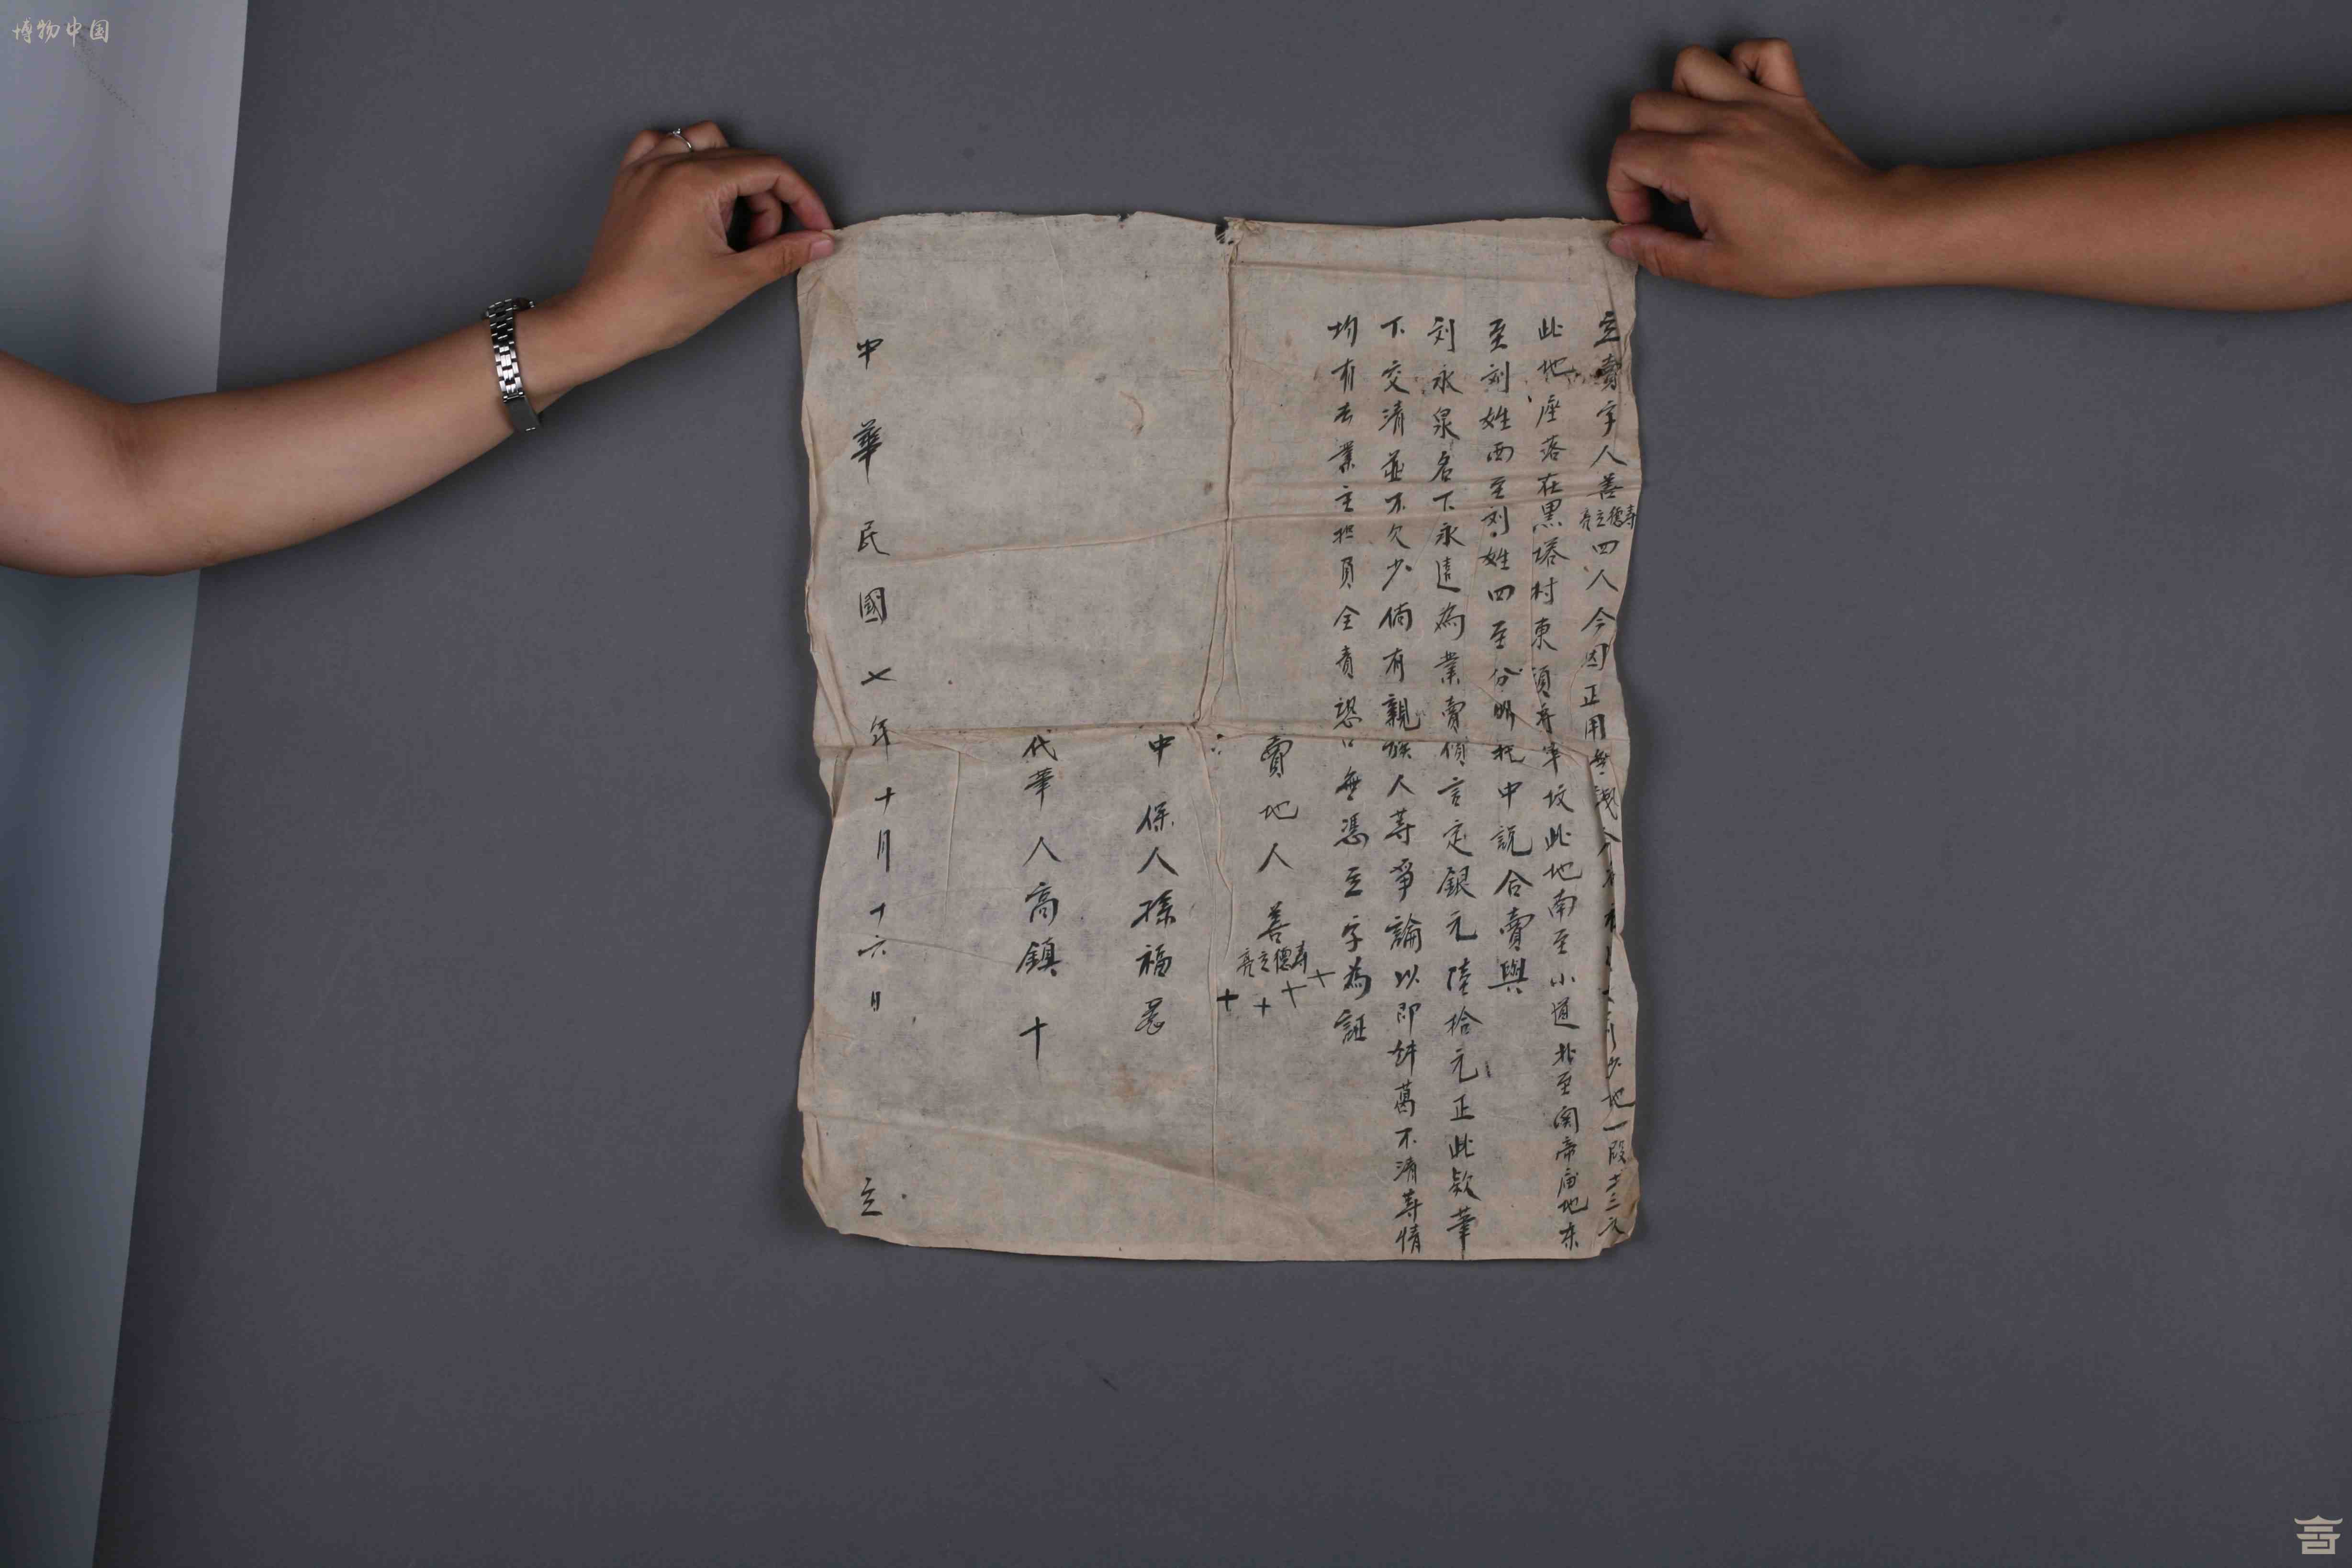 博物中国
立賣字人善寿德立亮四人今因正用無 地一段
此地座落在黑塔村東頭 坟此地南至小道北至関帝庙地東
至刘姓西至刘姓四至分明托中説合賣與
刘永泉名下永遠為業賣價言定銀元陸拾元正此欵筆
下交清並不欠少倘有親族人等爭論以即 葛不清等情
均有去業主担負全責恐口無憑立字為証
賣地人善寿德立亮十十十十
中保人孫福
代筆人高鎮十
中華民國七年十月十六日立